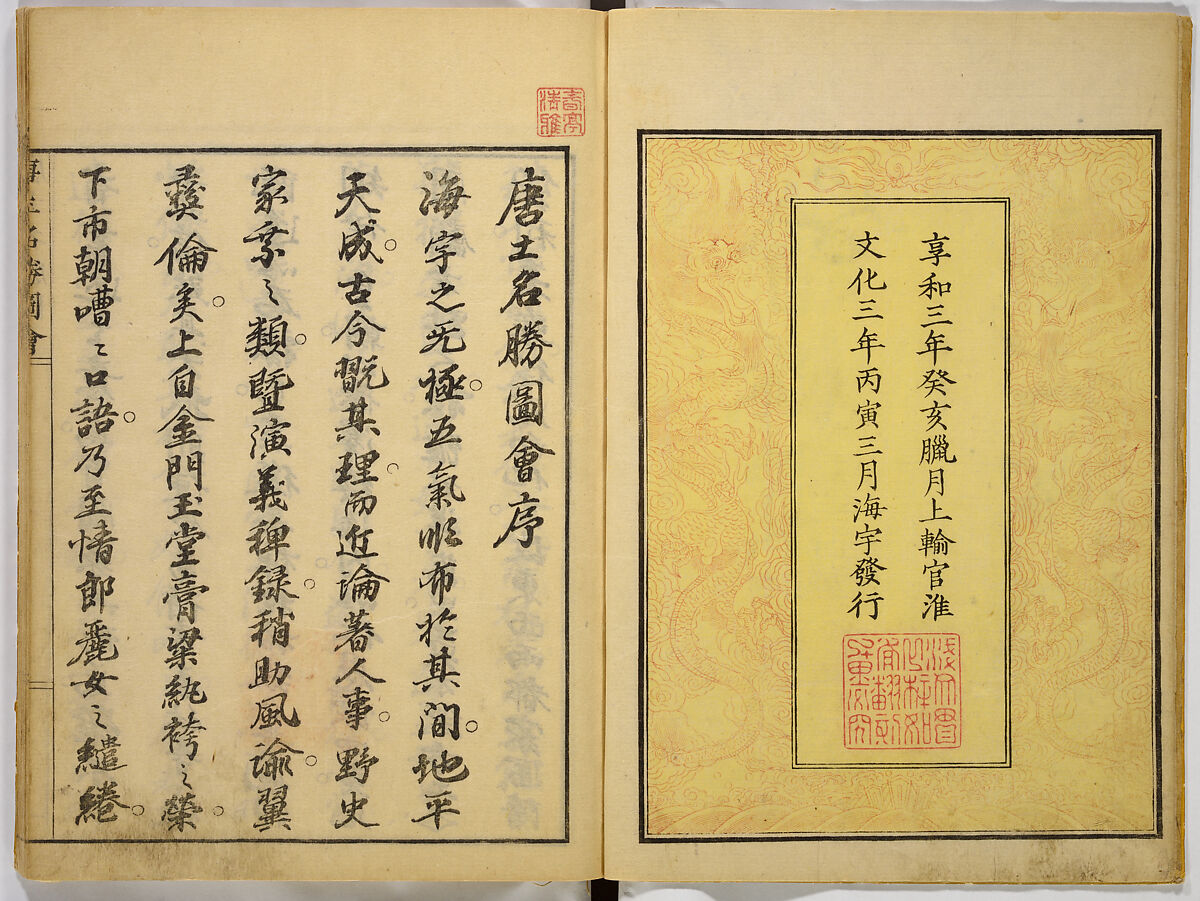 享和三年癸亥臘月上輸官淮
文化三年丙寅三月海宇發行
唐土名勝圖會序
海宇之无極。五氣順布於其間。地平
天成。古今翫其理。而近論著人事。野史
家乘之類。曁演義稗録。稍助風諭。翼
彝倫矣。上自金門玉堂膏粱紈袴之榮。
下市朝嘈〻口語。乃至情郎麗女之繾綣。
唐土名勝圖會